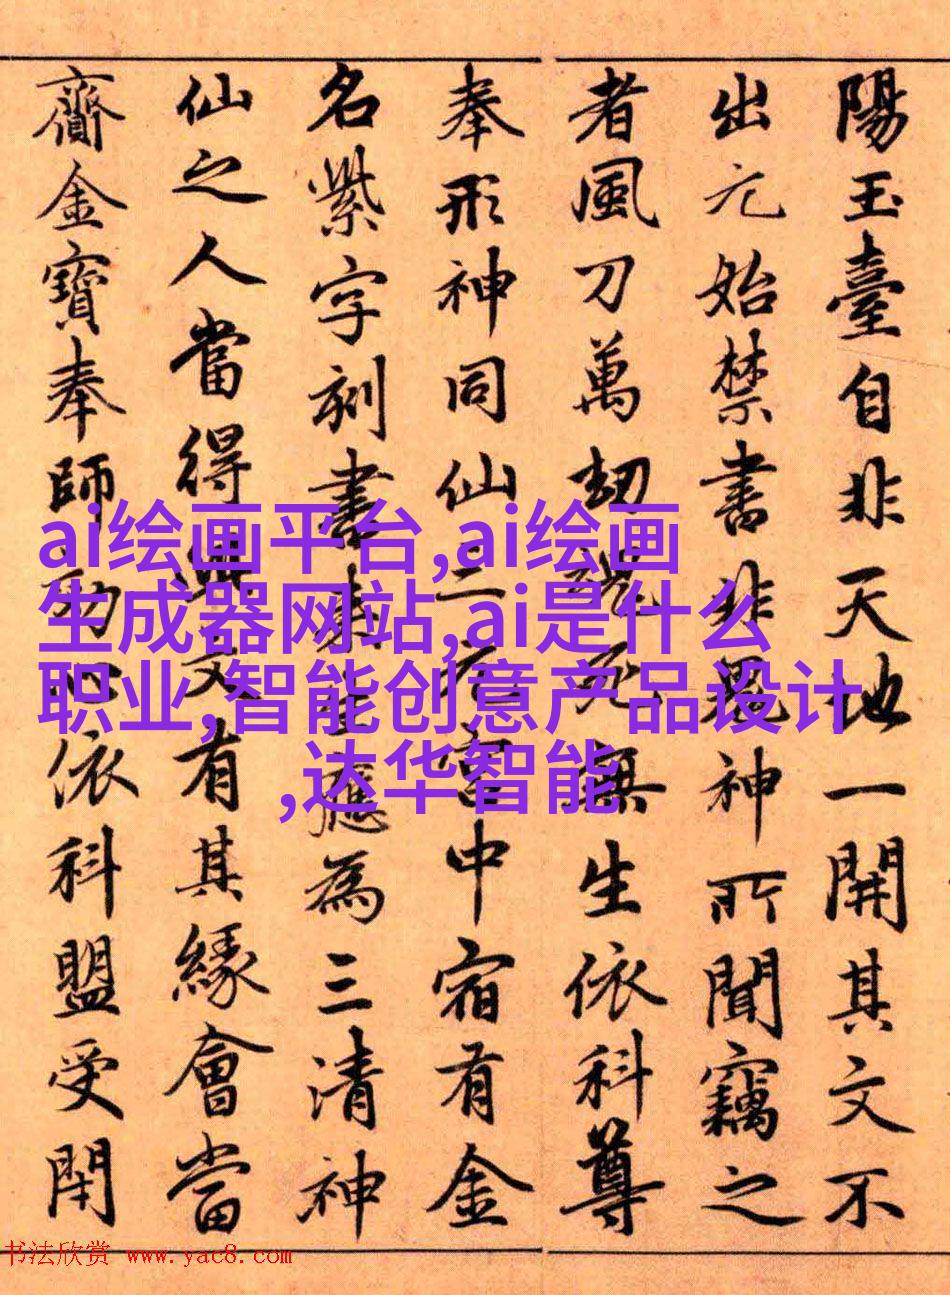 陽玉臺自非天地一開其文不
出元始禁書非鬼神所聞竊之
者風刀萬劫魂死無生依科尊
奉形神同仙二元宮中宿有金
名紫字刻書來生應為三清神
仙之人當得此文有其緣會當
齎金寶奉師心依科盟受閇
ai绘画平台,ai绘画
生成器网站,ai是什么
职业,智能创意产品设计
,达华智能
书法欣赏 www.yac8.com